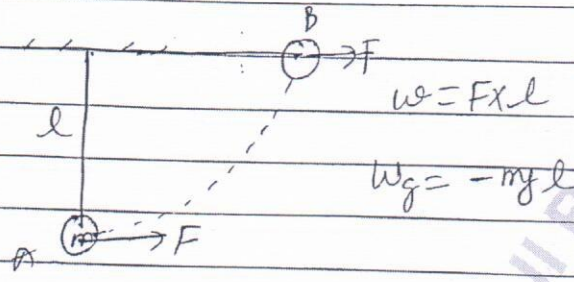 B
F
l
w = F x l
Wg = - mg l
m
F
A